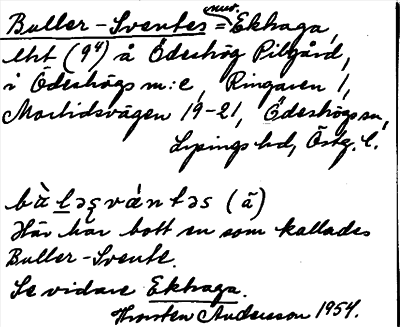 Buller-Sventes = nuv. Ekhaga,
lht (9⁴) å Ödeshög Pilgård,
i Ödeshögs m:e, Ringaren 1,
Mostidsvägen 19-21, Ödeshögs sn,
Lysings hd, Östg. l.
bàləsvántəs (ã)
Här har bott en som kallades
Buller-Svente.
Se vidare Ekhaga.
Thorsten Andersson 1954.